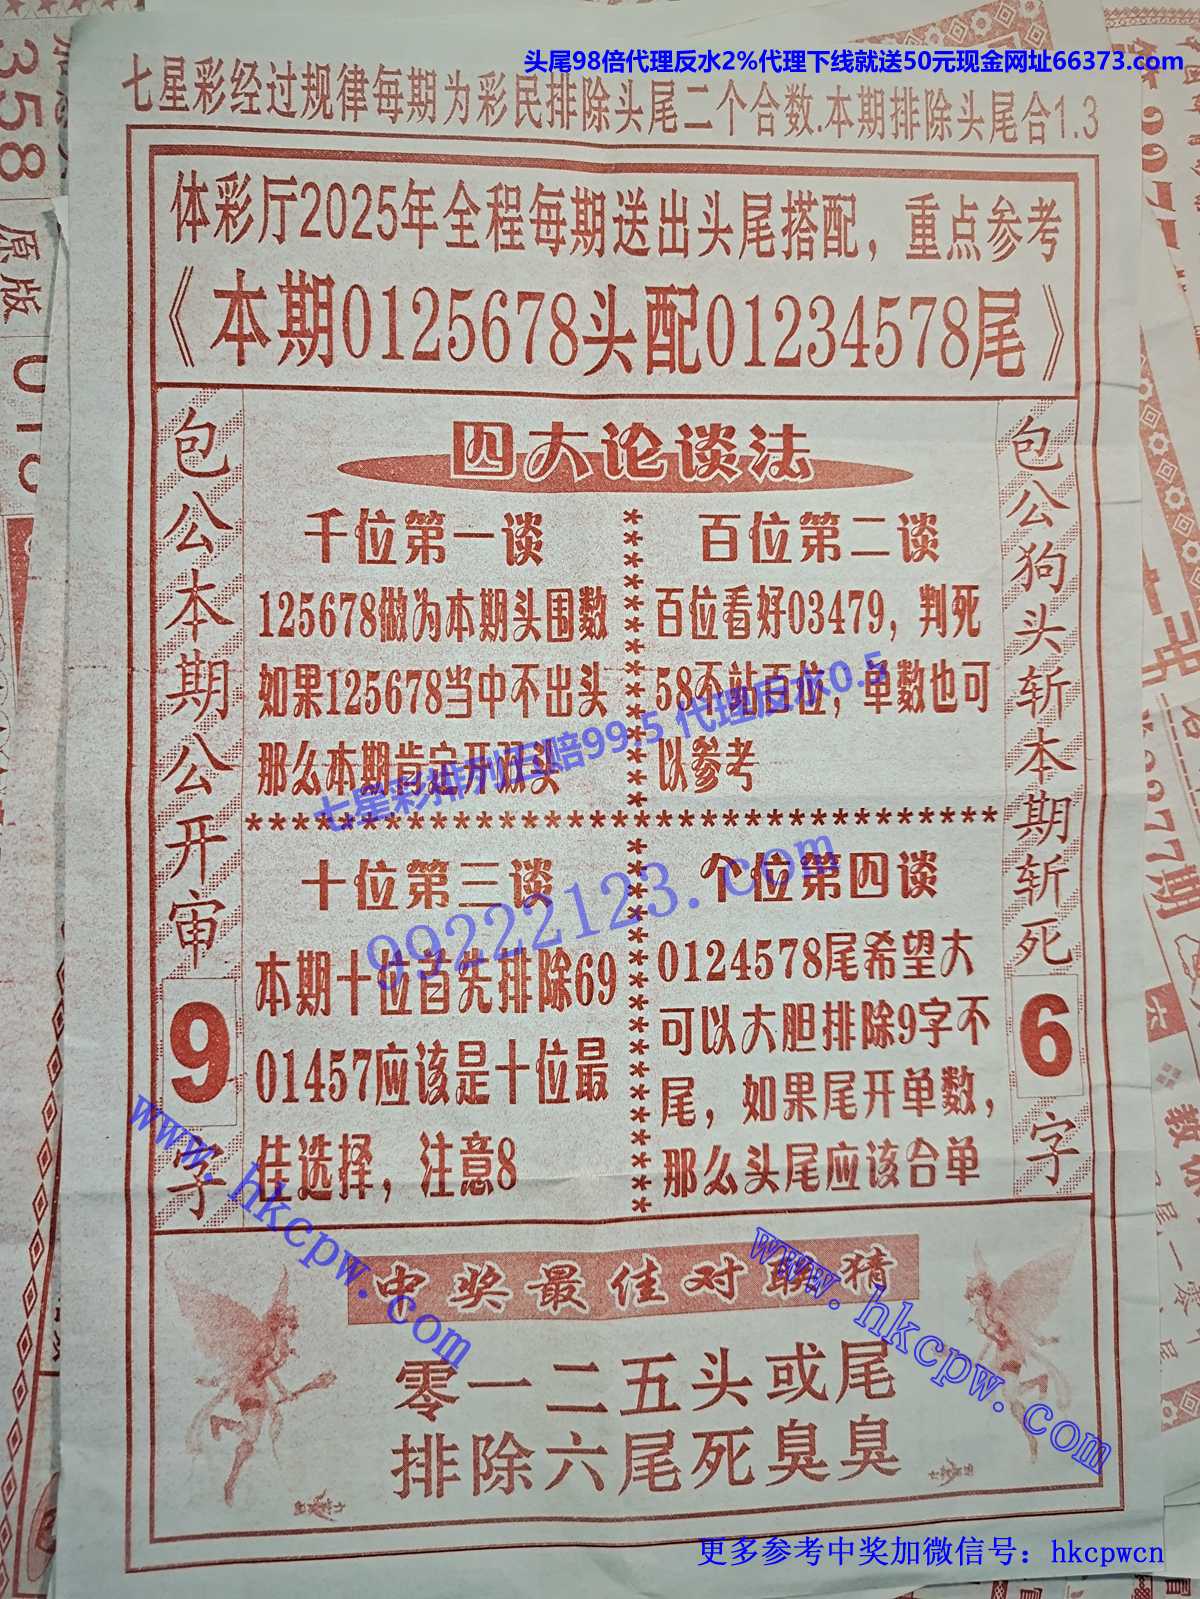 头尾98倍代理反水2%代理下线就送50元现金网址66373.com
七星彩经过规律每期为彩民排除头尾二个合数.本期排除头尾合1.3
体彩厅2025年全程每期送出头尾搭配，重点参考
《本期0125678头配01234578尾》
包公本期公开审
9
字
四大论谈法
千位第一谈
125678做为本期头围数
如果125678当中不出头
那么本期肯定开双头
百位第二谈
百位看好03479，判死
58不站百位，单数也可
以参考
十位第三谈
本期十位首先排除69
01457应该是十位最
佳选择，注意8
个位第四谈
0124578尾希望大
可以大胆排除9字不
尾，如果尾开单数，
那么头尾应该合单
包公狗头斩本期斩死
6
字
中奖最佳对联猜
零一二五头或尾
排除六尾死臭臭
七星彩排列五赔99.5 代理反水0.5
99222123.com
www.hkcpw.com
www.hkcpw.com
更多参考中奖加微信号：hkcpwcn
358
原版